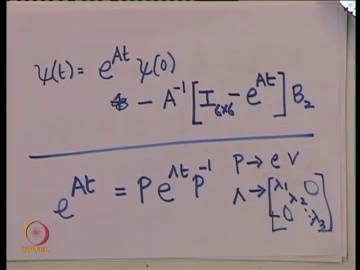 ψ(t) = e^{At} ψ(0)
- A^{-1} [I_{6x6} - e^{At}] B_2
e^{At} = P e^{Λt} P^{-1} P → e v
λ → [λ_1 0
λ_2
0 ⋱ λ_3]